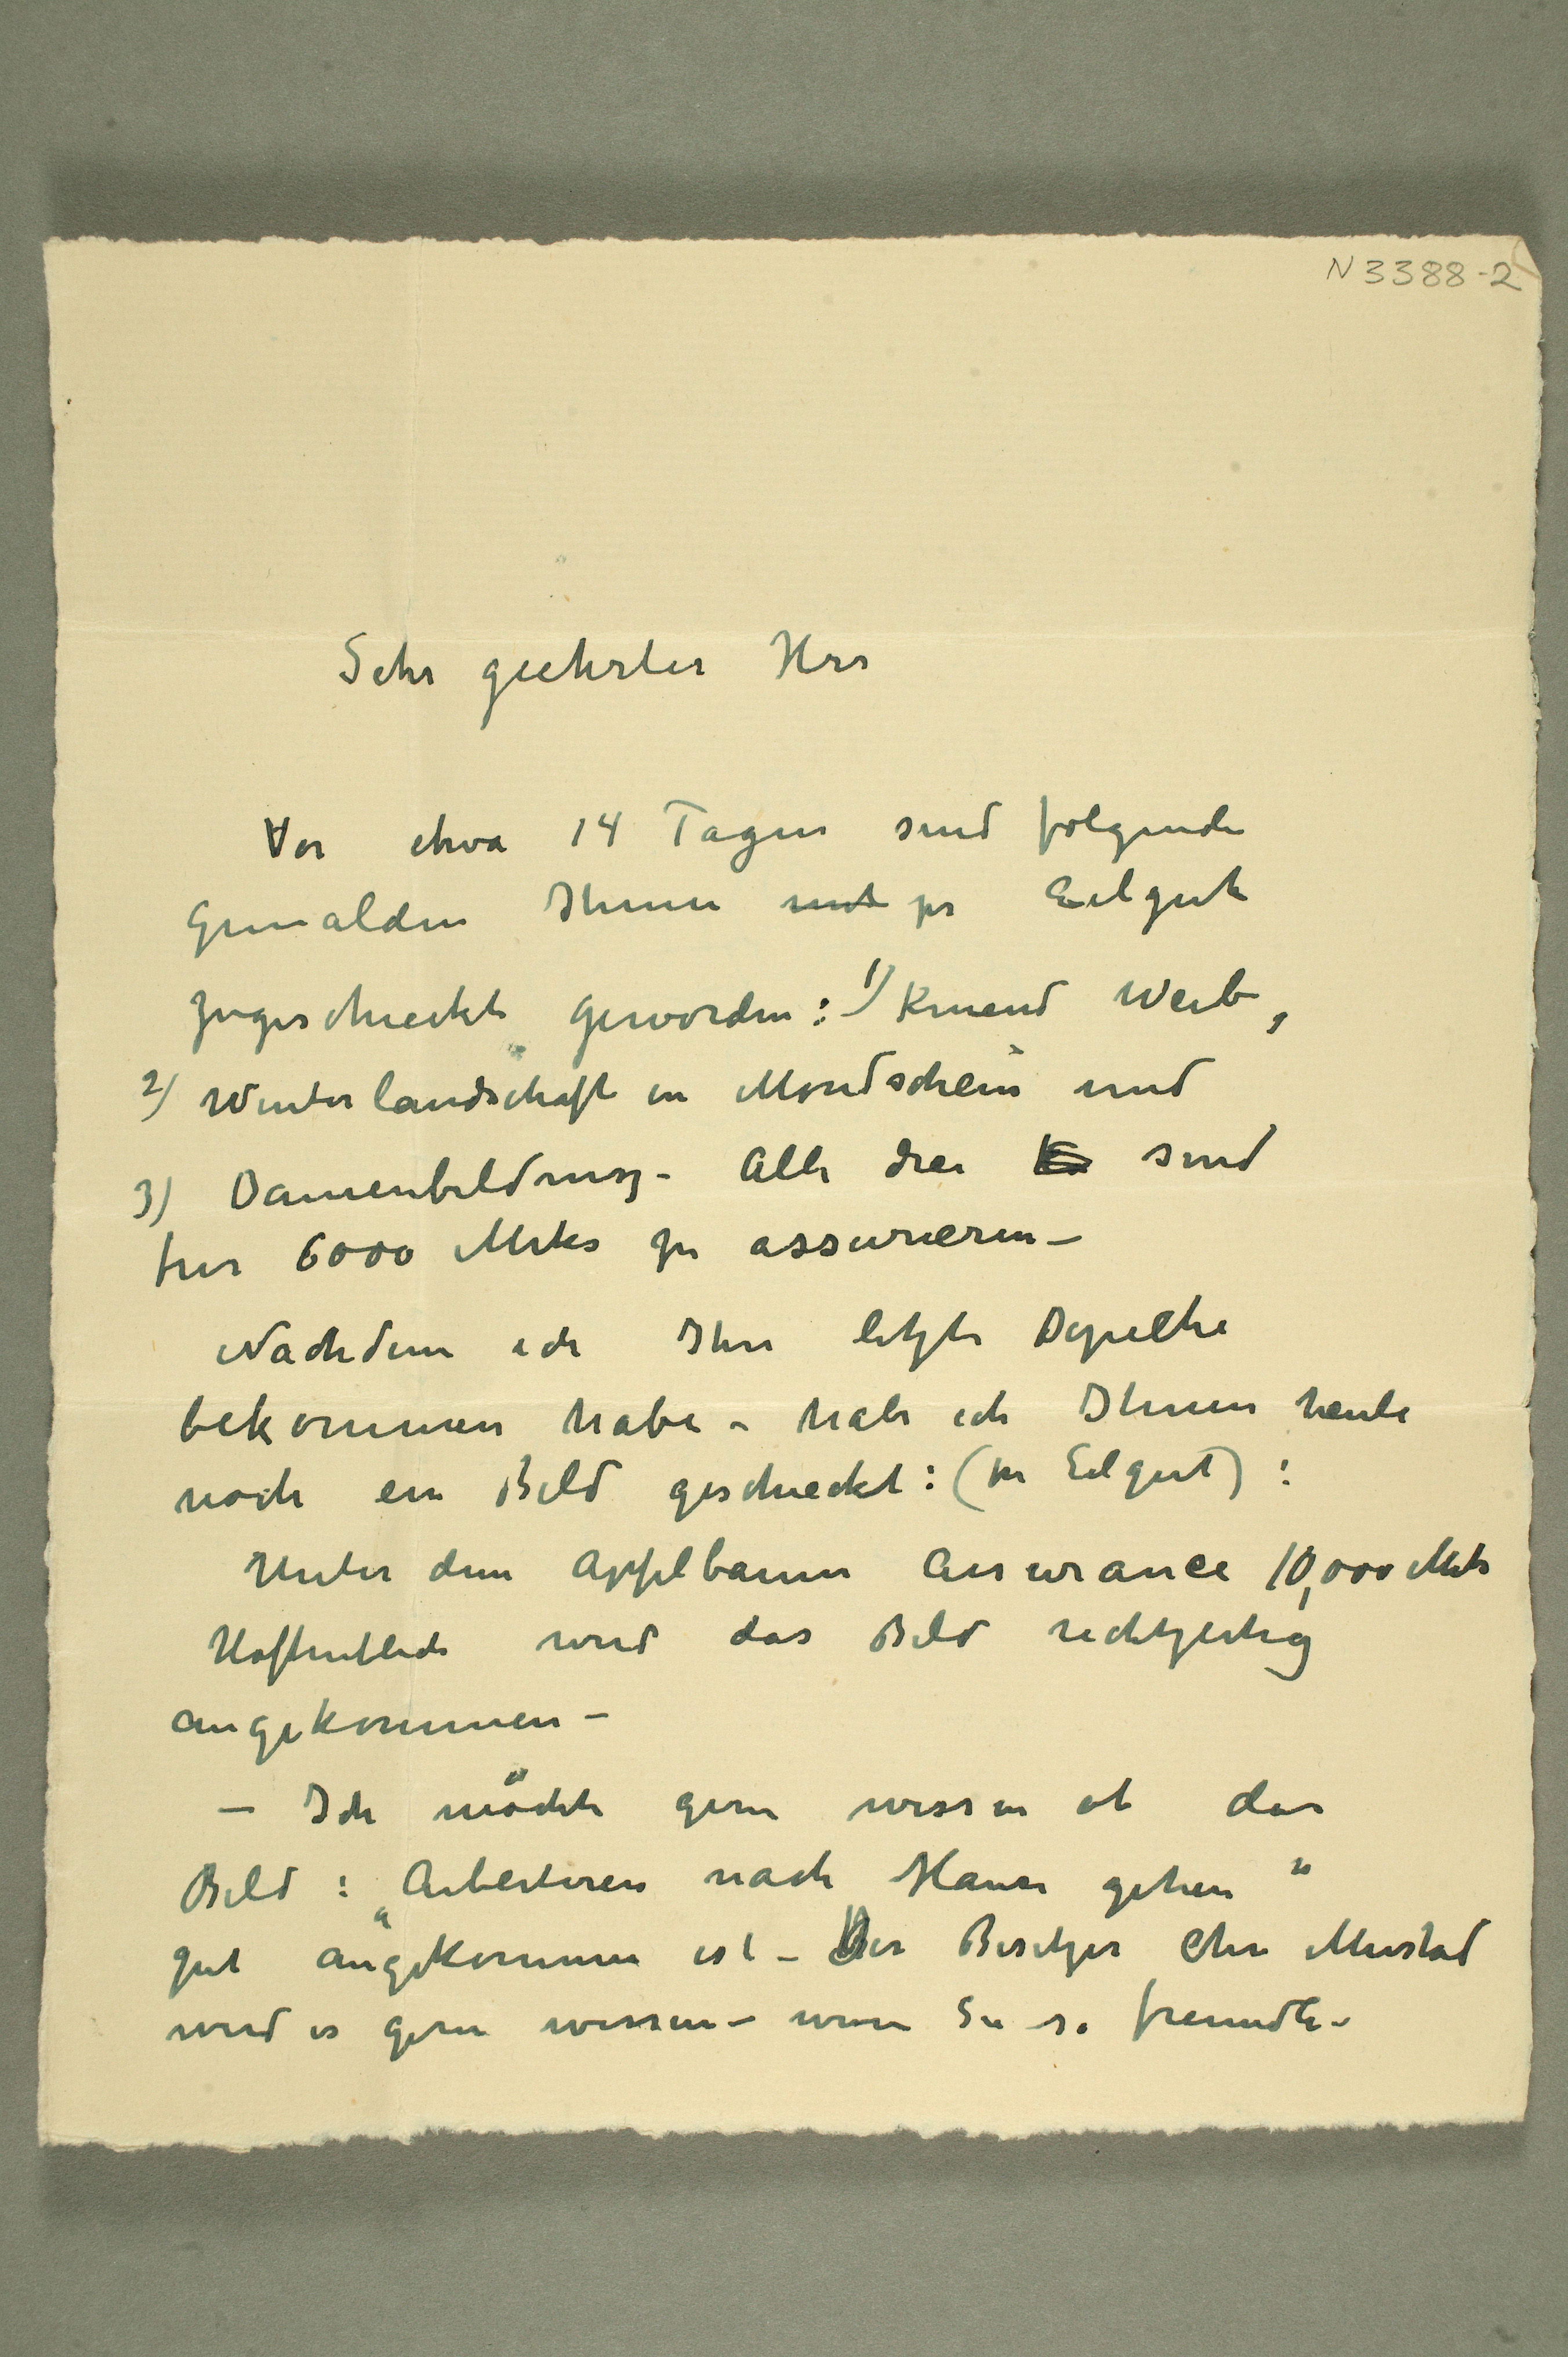 N 3388-2
Sehr geehrter Herr
Vor etwa 14 Tagen sind folgende
Gemalden Ihnen mit pr Eilgut
zugeschieckt geworden: 1) Knieend Weib,
2) Winterlandschaft in Mondschein und
3) Damenbildnisz – Alle drei sind
fur 6000 Mrks zu assurieren –
Nachdem ich Ihre letzte Depeche
bekommen habe – habe ich Ihnen heute
noch ein Bild geschieckt: (pr Eilgut):
Unter dem Apfelbaum Assurance 10,000 Mrk
Hoffentlich wird das Bild rechtzeitig
angekommen –
– Ich möchte gern wissen ob das
Bild: „Arbeiteren nach Hause gehen“
gut angekommen ist – Der Besitzer Chr Mustad
wird es gern wissen – wenn Sie so freundli-